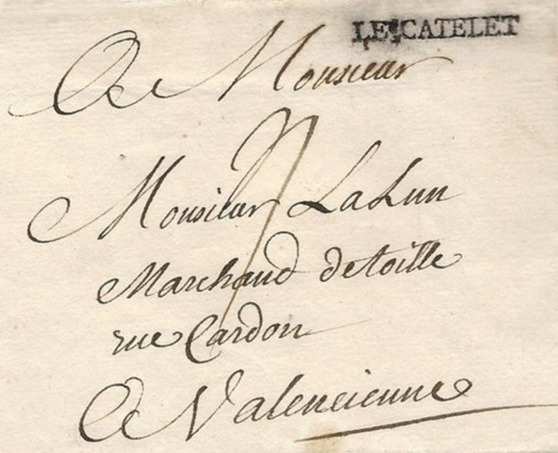 LE CATELET
A Monsieur
Monsieur LaLun
Marchand detoille
rue Cardon
A Valencienne